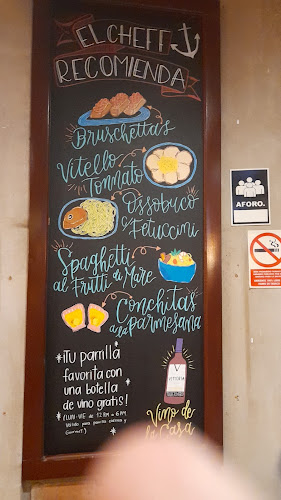 EL CHEFF
RECOMIENDA
Bruschetta's
Vitello
Tonnato
Ossobuco
Fetuccini
Spaghetti
al Frutti di Mare
Conchitas
a la parmesana
¡Tu parrilla
favorita con una
botella
de vino gratis!
(LUN-VIE de 12 PM a 6 PM
Válido para parrilla clásica y
Gourmet)
V
VITTORIA
Vino de
la Casa
AFORO.